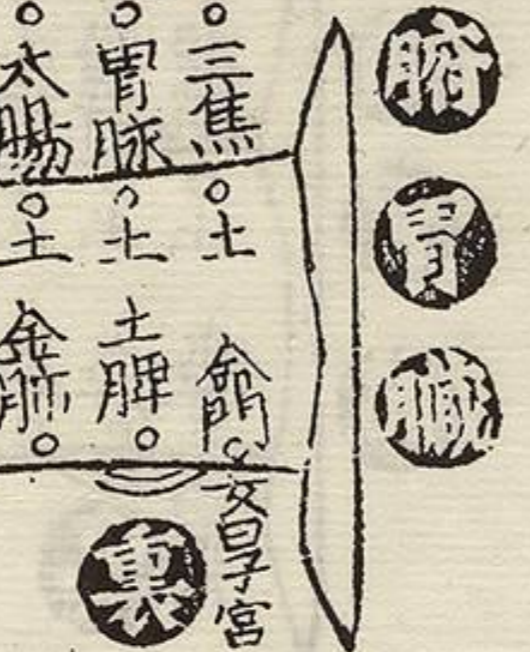 腑
胃
脈
三焦
土
命門
女曰子宮
胃脉
土
土脾
太腸
土
金肺
裏